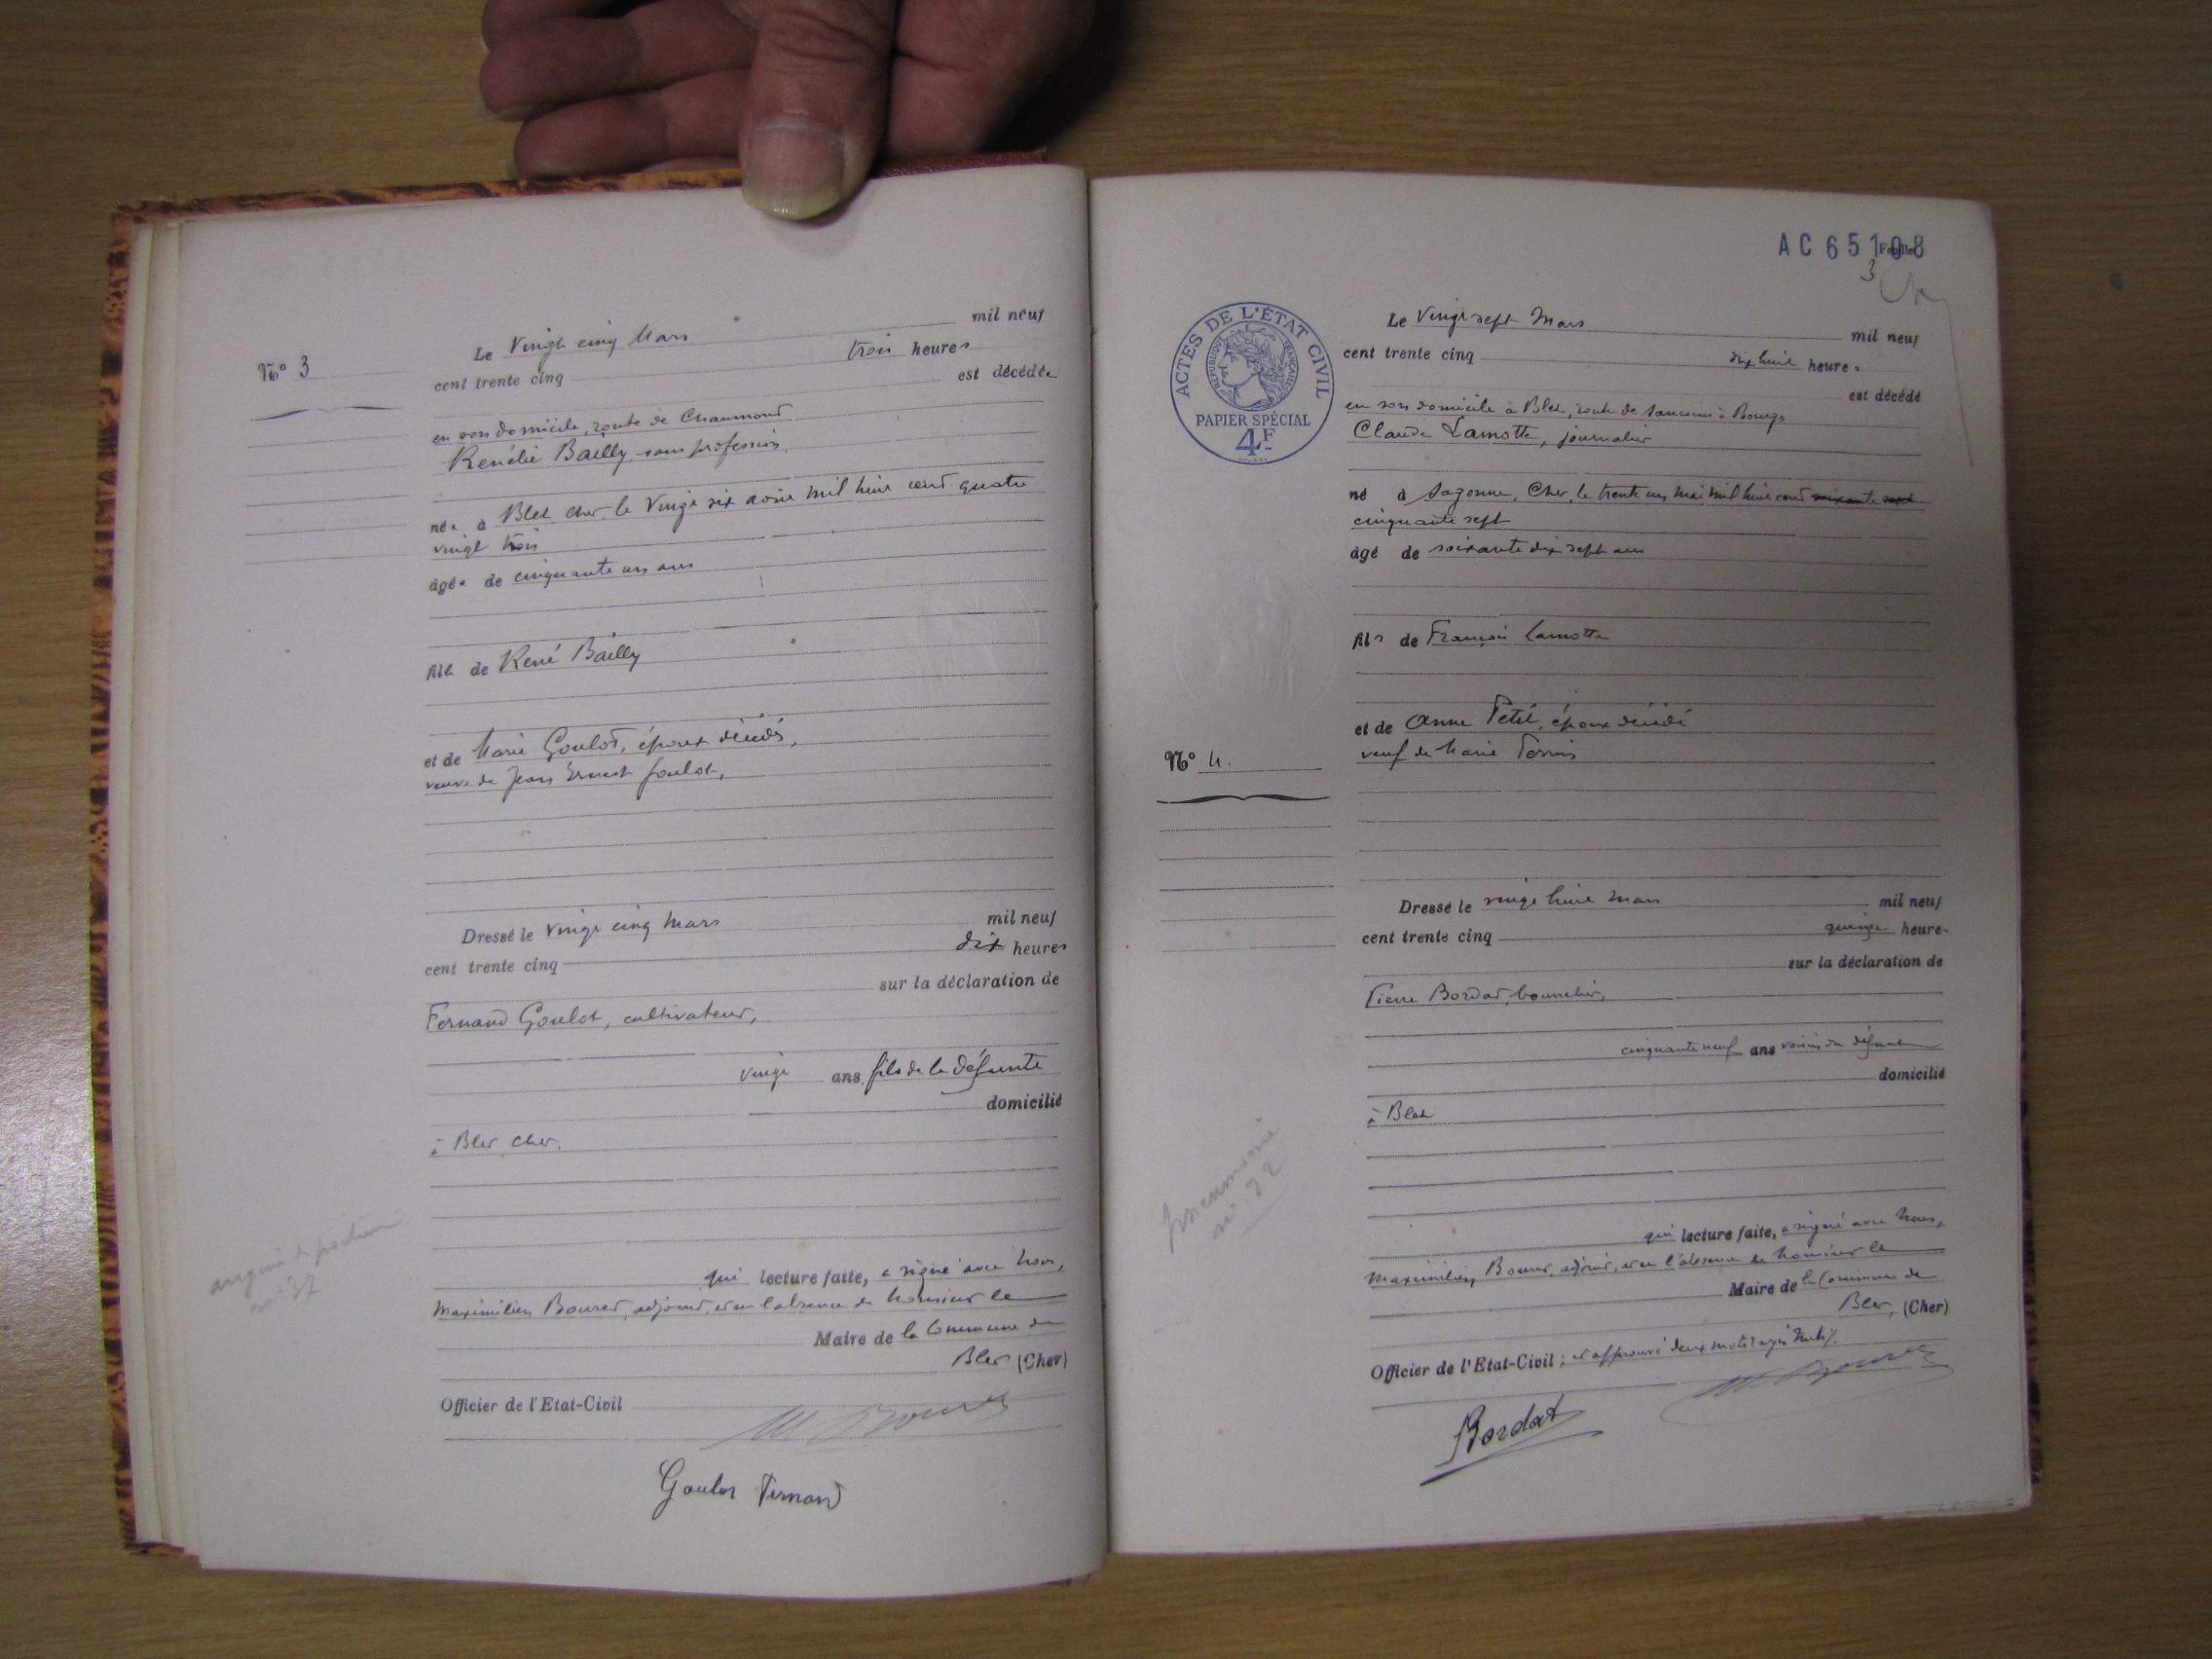 N° 3
Le Vingt cinq Mars mil neuf
cent trente cinq trois heures
est décédée
en son domicile, route de Chaumont
Renélie Bailly, sans profession,
née à Blet Cher, le Vingt six août mil huit cent quatre
vingt trois
âgée de cinquante un ans
fille de René Bailly
et de Marie Goulot, époux décédés,
veuve de Jean Ernest Goulot,
Dressé le vingt cinq Mars mil neuf
cent trente cinq dix heures
sur la déclaration de
Fernand Goulot, cultivateur,
vingt ans, fils de la défunte
domicilié
à Blet, Cher.
angine de poitrine
n° 37
qui lecture faite, a signé avec Nous,
Maximilien Bouret, adjoint, et en l'absence de Monsieur le
Maire de la Commune de
Blet (Cher)
Officier de l'Etat-Civil
Goulot Fernand
AC 65108
Feuillet
3
ACTES DE L'ÉTAT CIVIL
RÉPUBLIQUE FRANÇAISE
PAPIER SPÉCIAL
4F
N° 4.
Le Vingt sept Mars mil neuf
cent trente cinq dix huit heures
est décédé
en son domicile à Blet, route de Sancoins à Bourges
Claude Lamotte, journalier
né à Sagonne, Cher, le trente un mai mil huit cent
cinquante sept
âgé de soixante dix sept ans
fils de François Lamotte
et de Anne Petit, époux décédés
veuf de Marie Perrin
Dressé le vingt huit Mars mil neuf
cent trente cinq quinze heures
sur la déclaration de
Pierre Bordat, bourrelier,
cinquante neuf ans voisin du défunt
domicilié
à Blet
pneumonie
qui lecture faite, a signé avec Nous,
Maximilien Bouret, adjoint, et en l'absence de Monsieur le
Maire de la Commune de
Blet, (Cher)
Officier de l'Etat-Civil ; et approuvé deux mots rayés nuls.
Bordat